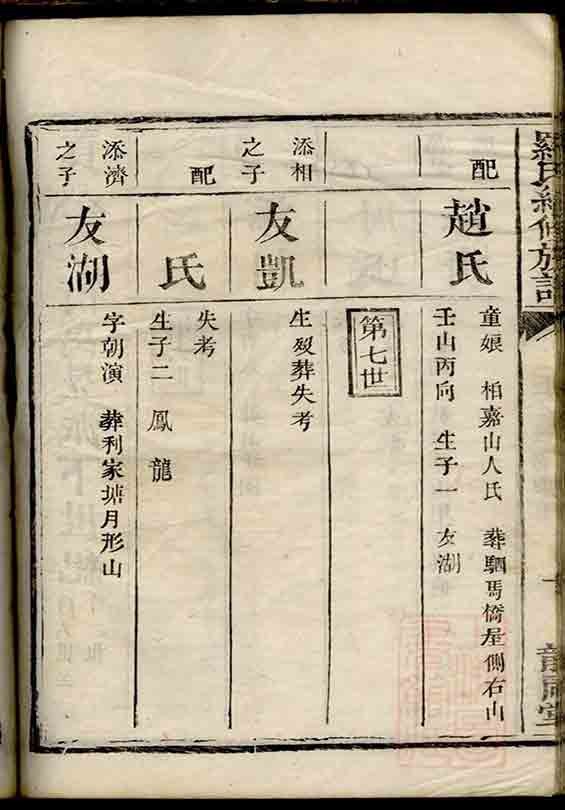 配
趙氏
童娘 柏嘉山人氏 葬駟馬橋屋側右山
壬山丙向 生子一 友湖
第七世
添相
之子
友凱
生歿葬失考
配
氏
失考
生子二 鳳 龍
添濟
之子
友湖
字朝演 葬利家塘月形山